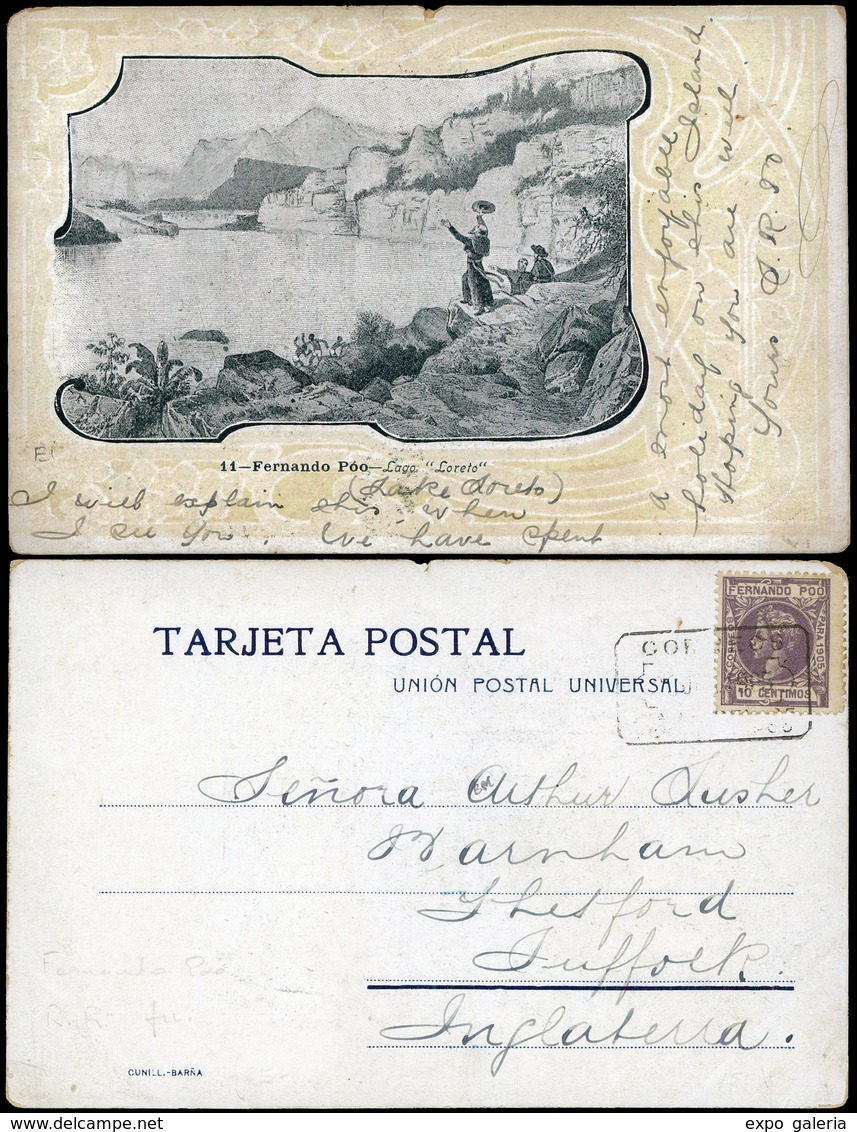 11—Fernando Póo—Lago "Loreto"
(Lake Loreto)
I will explain this when
I see you. We have spent
a most enjoyable
holiday on this Island.
Hoping you are well.
Yours
TARJETA POSTAL
UNIÓN POSTAL UNIVERSAL
FERNANDO POO
PARA 1905
10 CENTIMOS
CORREOS
Señora Arthur Lusher
Barnham
Thetford
Suffolk.
Inglaterra.
Fernando Póo
CUNILL.-BARÑA
expo galeria